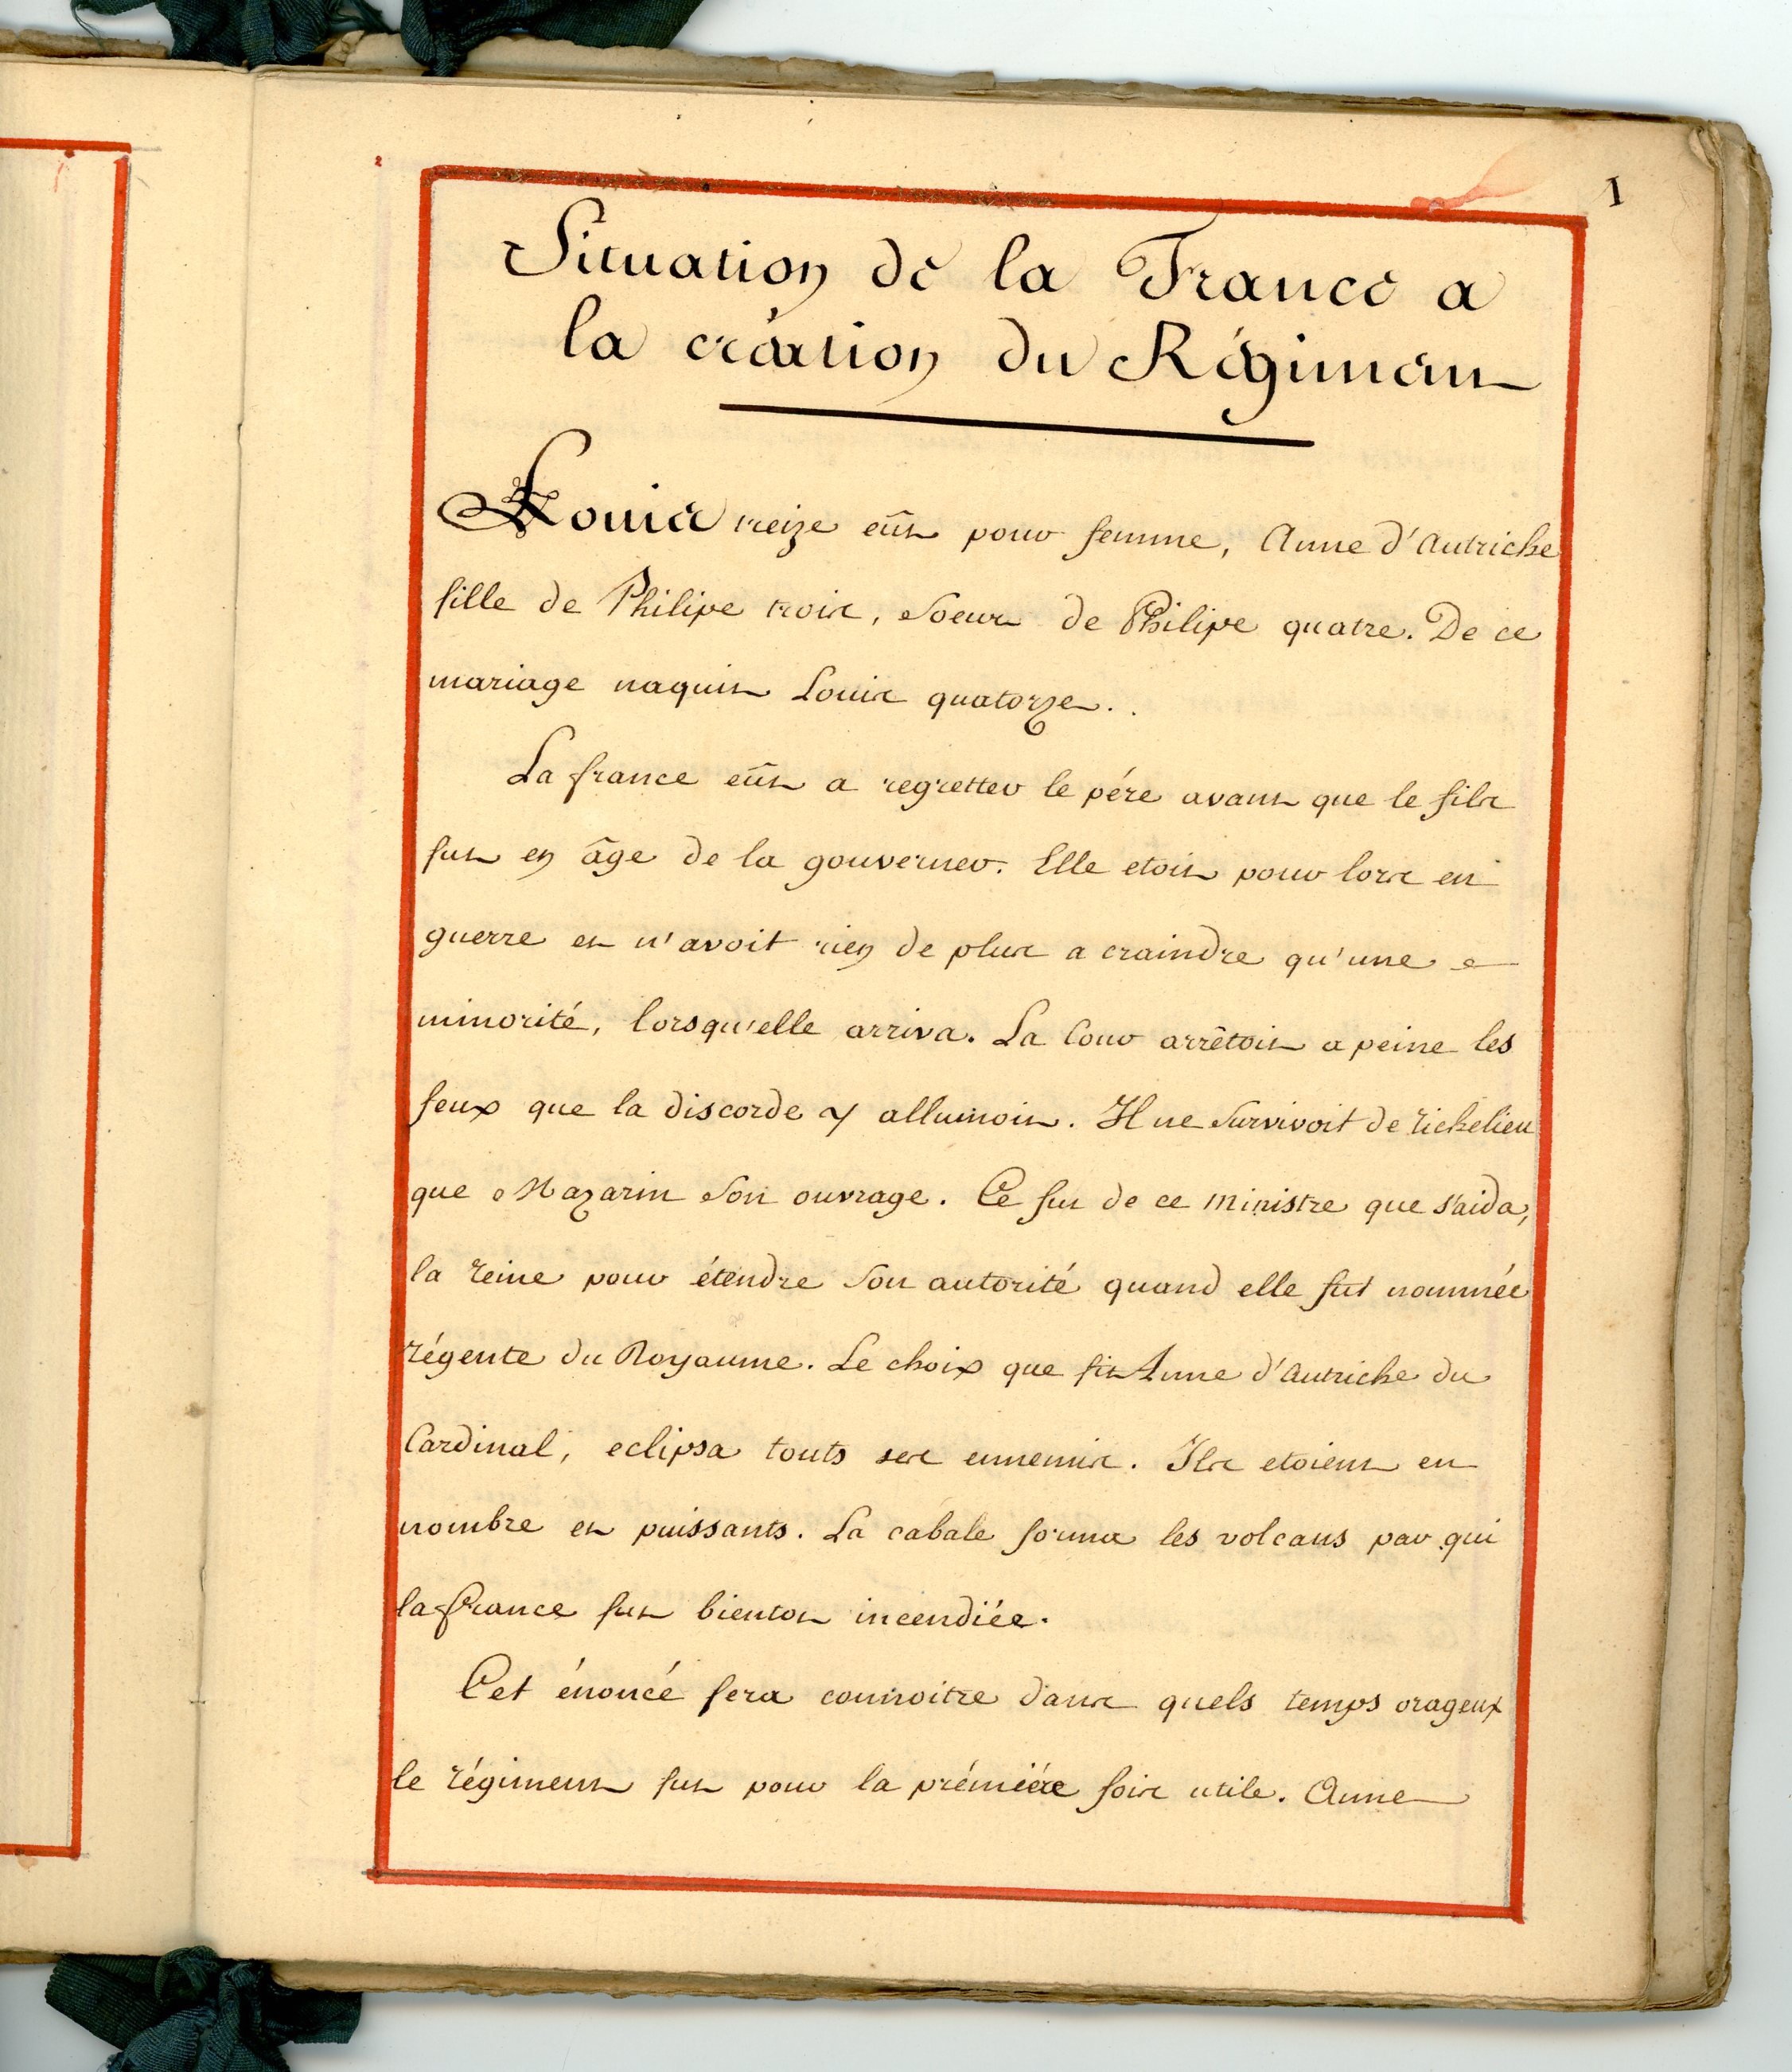 1
Situation de la France a
la création du Régiment
Louis treize eût pour femme, Anne d'Autriche
fille de Philipe trois, Soeur de Philipe quatre. De ce
mariage naquit Louis quatorze.
La france eût a regretter le pére avant que le fils
fut en âge de la gouverner. Elle etoit pour lors en
guerre et n'avoit rien de plus a craindre qu'une
minorité, lorsqu'elle arriva. La Cour arrêtoit a peine les
feux que la discorde y allumoit. Il ne Survivoit de richelieu
que Mazarin Son ouvrage. Ce fut de ce ministre que s'aida,
la reine pour étendre Son autorité quand elle fut nommée
régente du Royaume. Le choix que fit Anne d'Autriche du
Cardinal, eclipsa touts ses ennemis. Ils etoient en
nombre et puissants. La cabale forma les volcans par qui
la france fut bientot incendiée.
Cet énoncé fera connoitre dans quels temps orageux
le régiment fut pour la prémiére fois utile. Anne